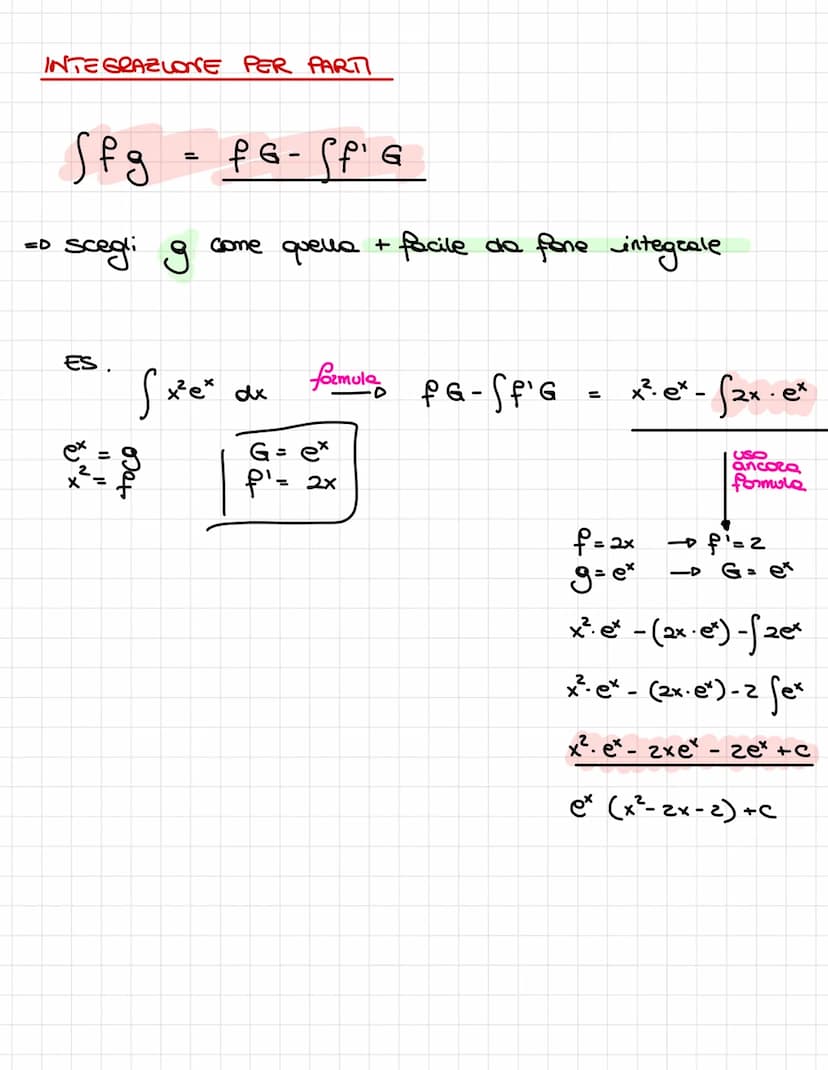 INTEGRAZIONE PER PARTI
∫fg = fG - ∫f'G
=> scegli g come quella + facile da fare integrale
ES.
∫ x²eˣ dx formula → fG - ∫f'G = x²·eˣ - ∫2x·eˣ
eˣ = g
x² = f
G = eˣ
f' = 2x
uso
ancora
formula
f = 2x → f' = 2
g = eˣ → G = eˣ
x²·eˣ - (2x·eˣ) - ∫2eˣ
x²·eˣ - (2x·eˣ) - 2∫eˣ
x²·eˣ - 2xeˣ - 2eˣ + c
eˣ (x² - 2x - 2) + c